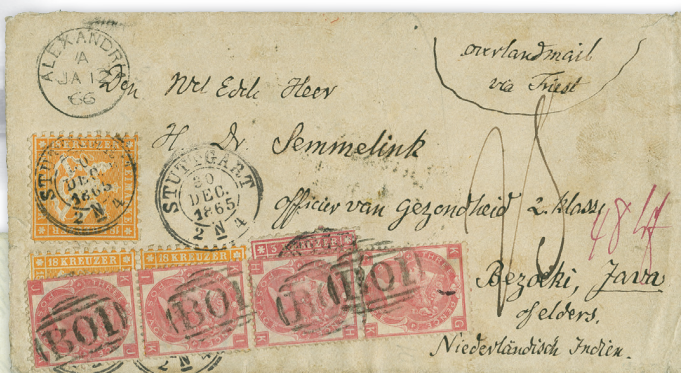 ALEXANDRIA
A
JA 12
66
overlandmail
via Triest
Den Wel Edele Heer
H Dr Semmelink
STUTTGART
30
DEC.
1865
2 N 4
STUTTGART
30
DEC.
1865
2 N 4
Officier van Gezondheid 2. klasse
48
18 KREUZER
18 KREUZER
3 KREUZER
B01
B01
B01
B01
Bezoeki, Java
of elders.
Niederländisch Indien.
2 N 4